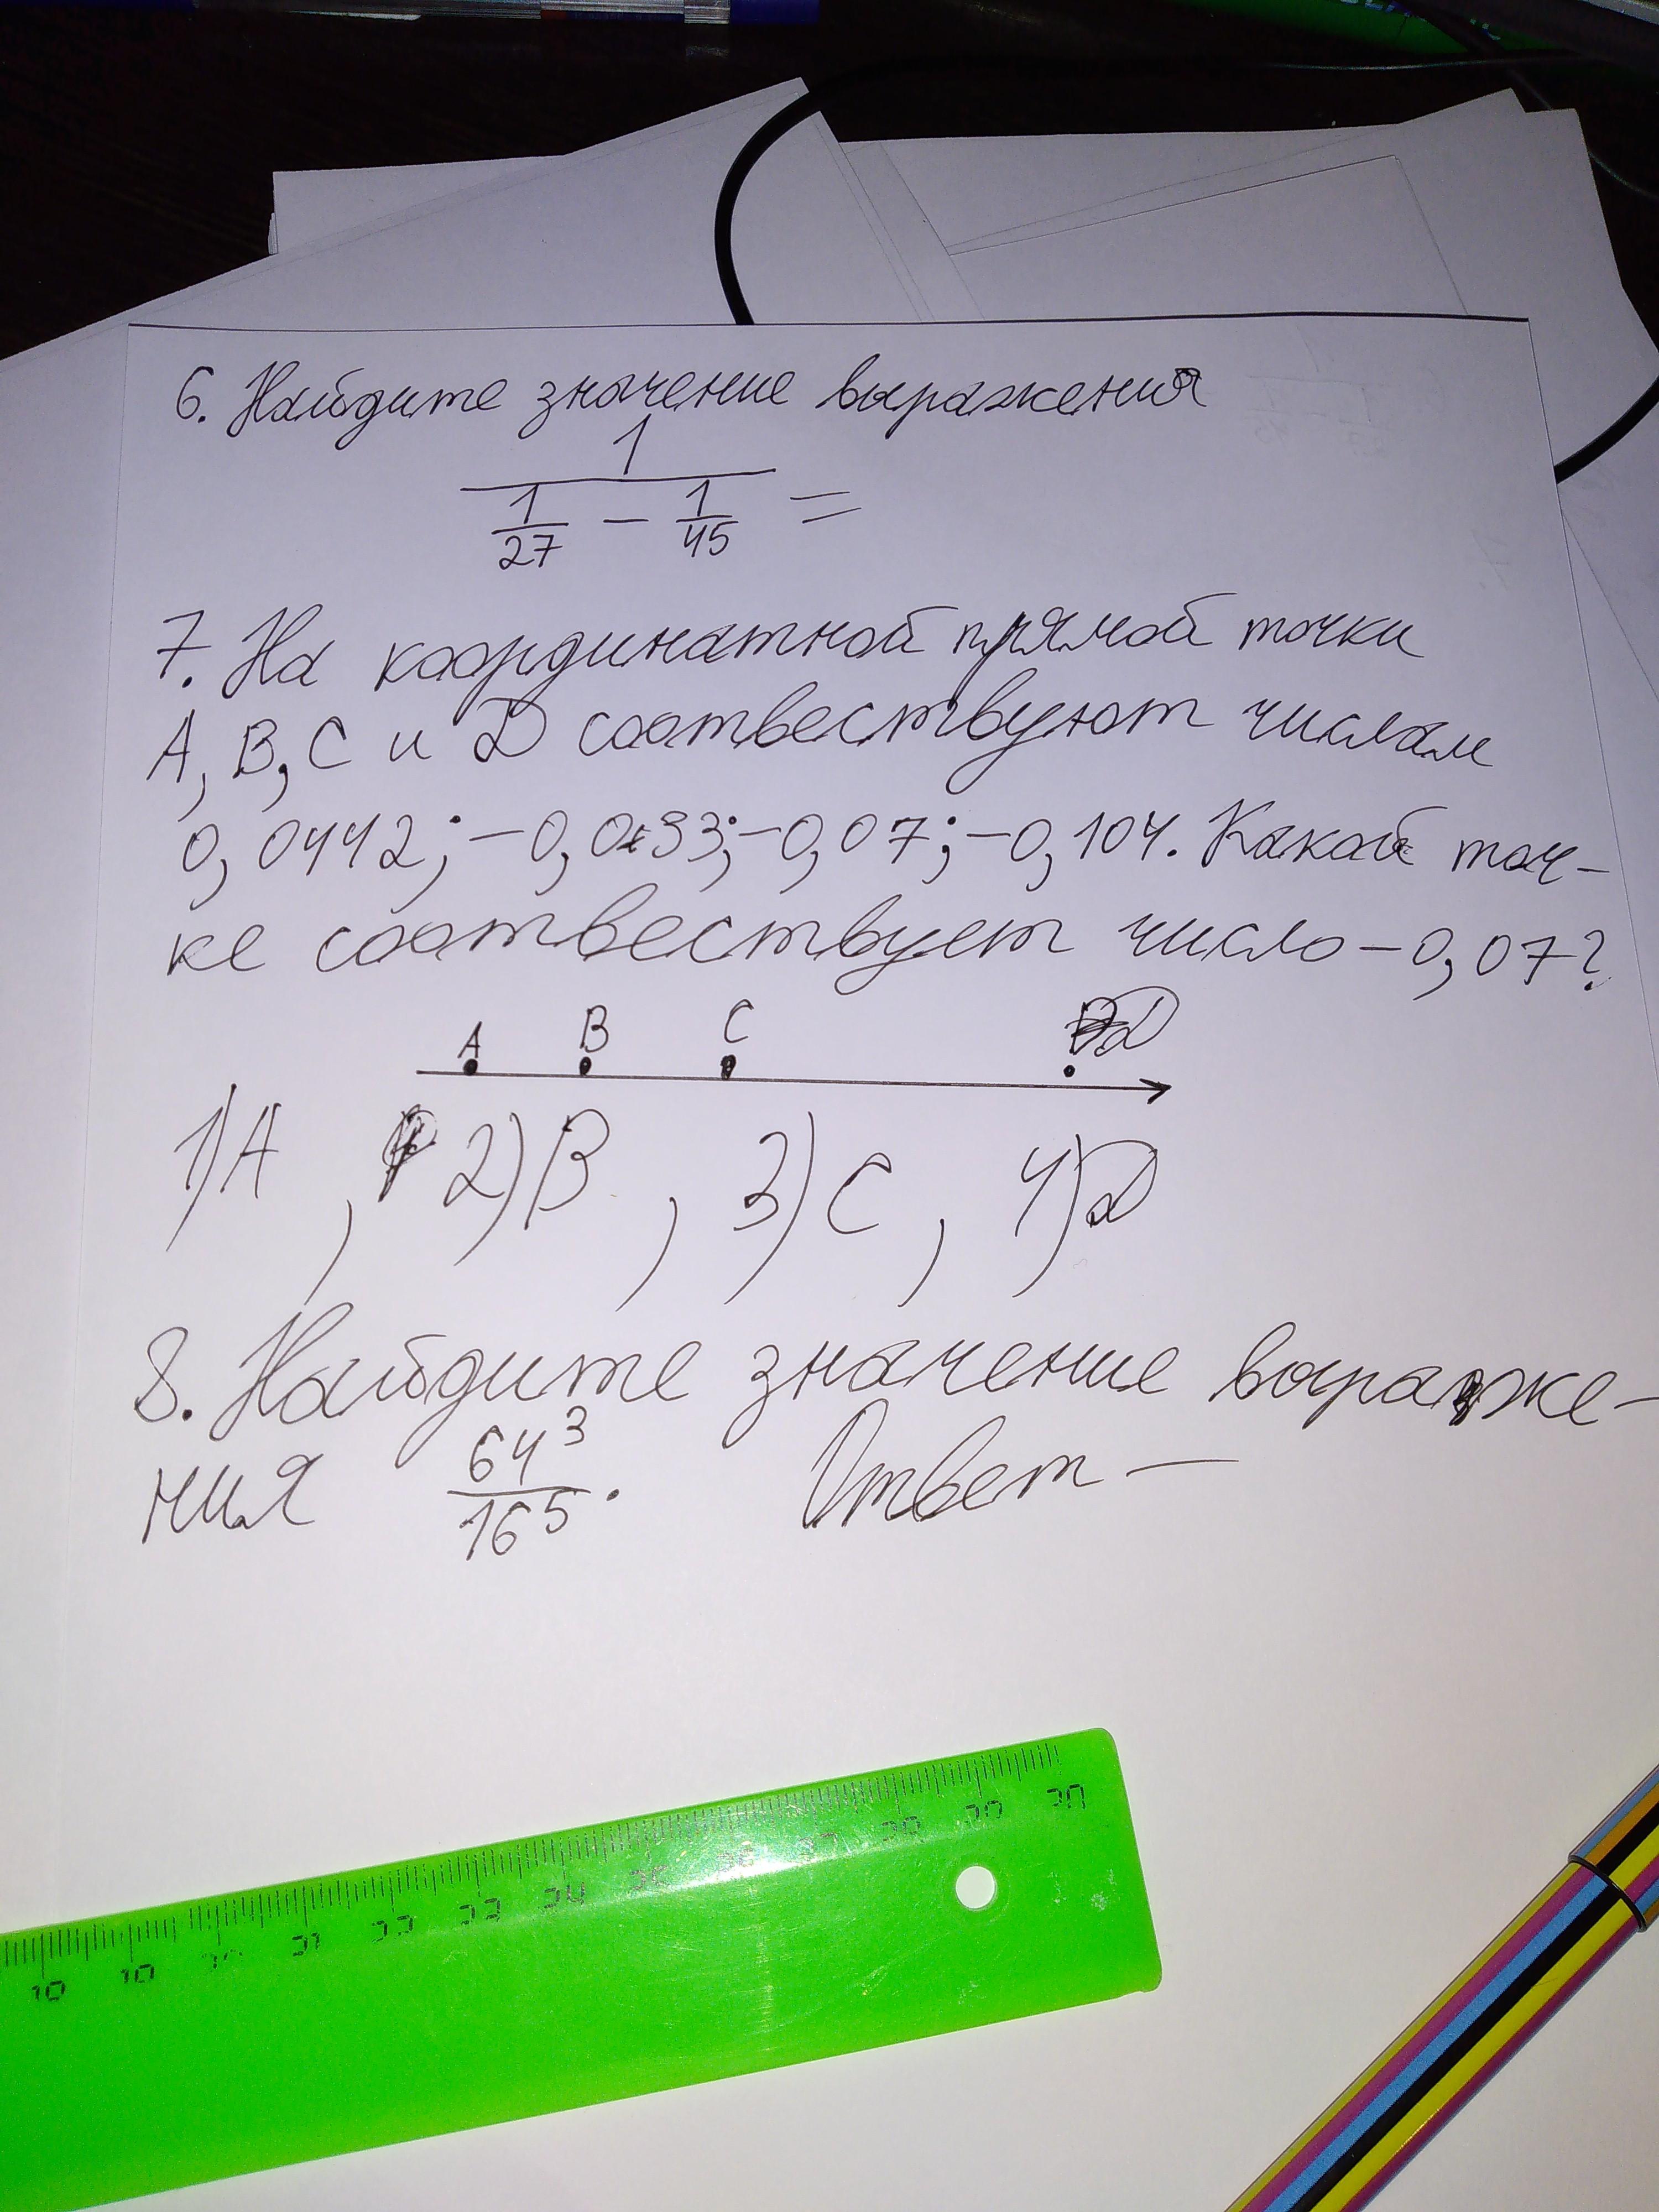 6. Найдите значение выражения
1
1/27 − 1/45 =
7. На координатной прямой точки
А, В, С и D соотвествуют числам
0,0442; −0,033; −0,07; −0,104. Какой точ-
ке соотвествует число −0,07?
А В С D
1) А , 2) В , 3) С , 4) D
8. Найдите значение выраже-
ния 64³/16⁵. Ответ —
10 10